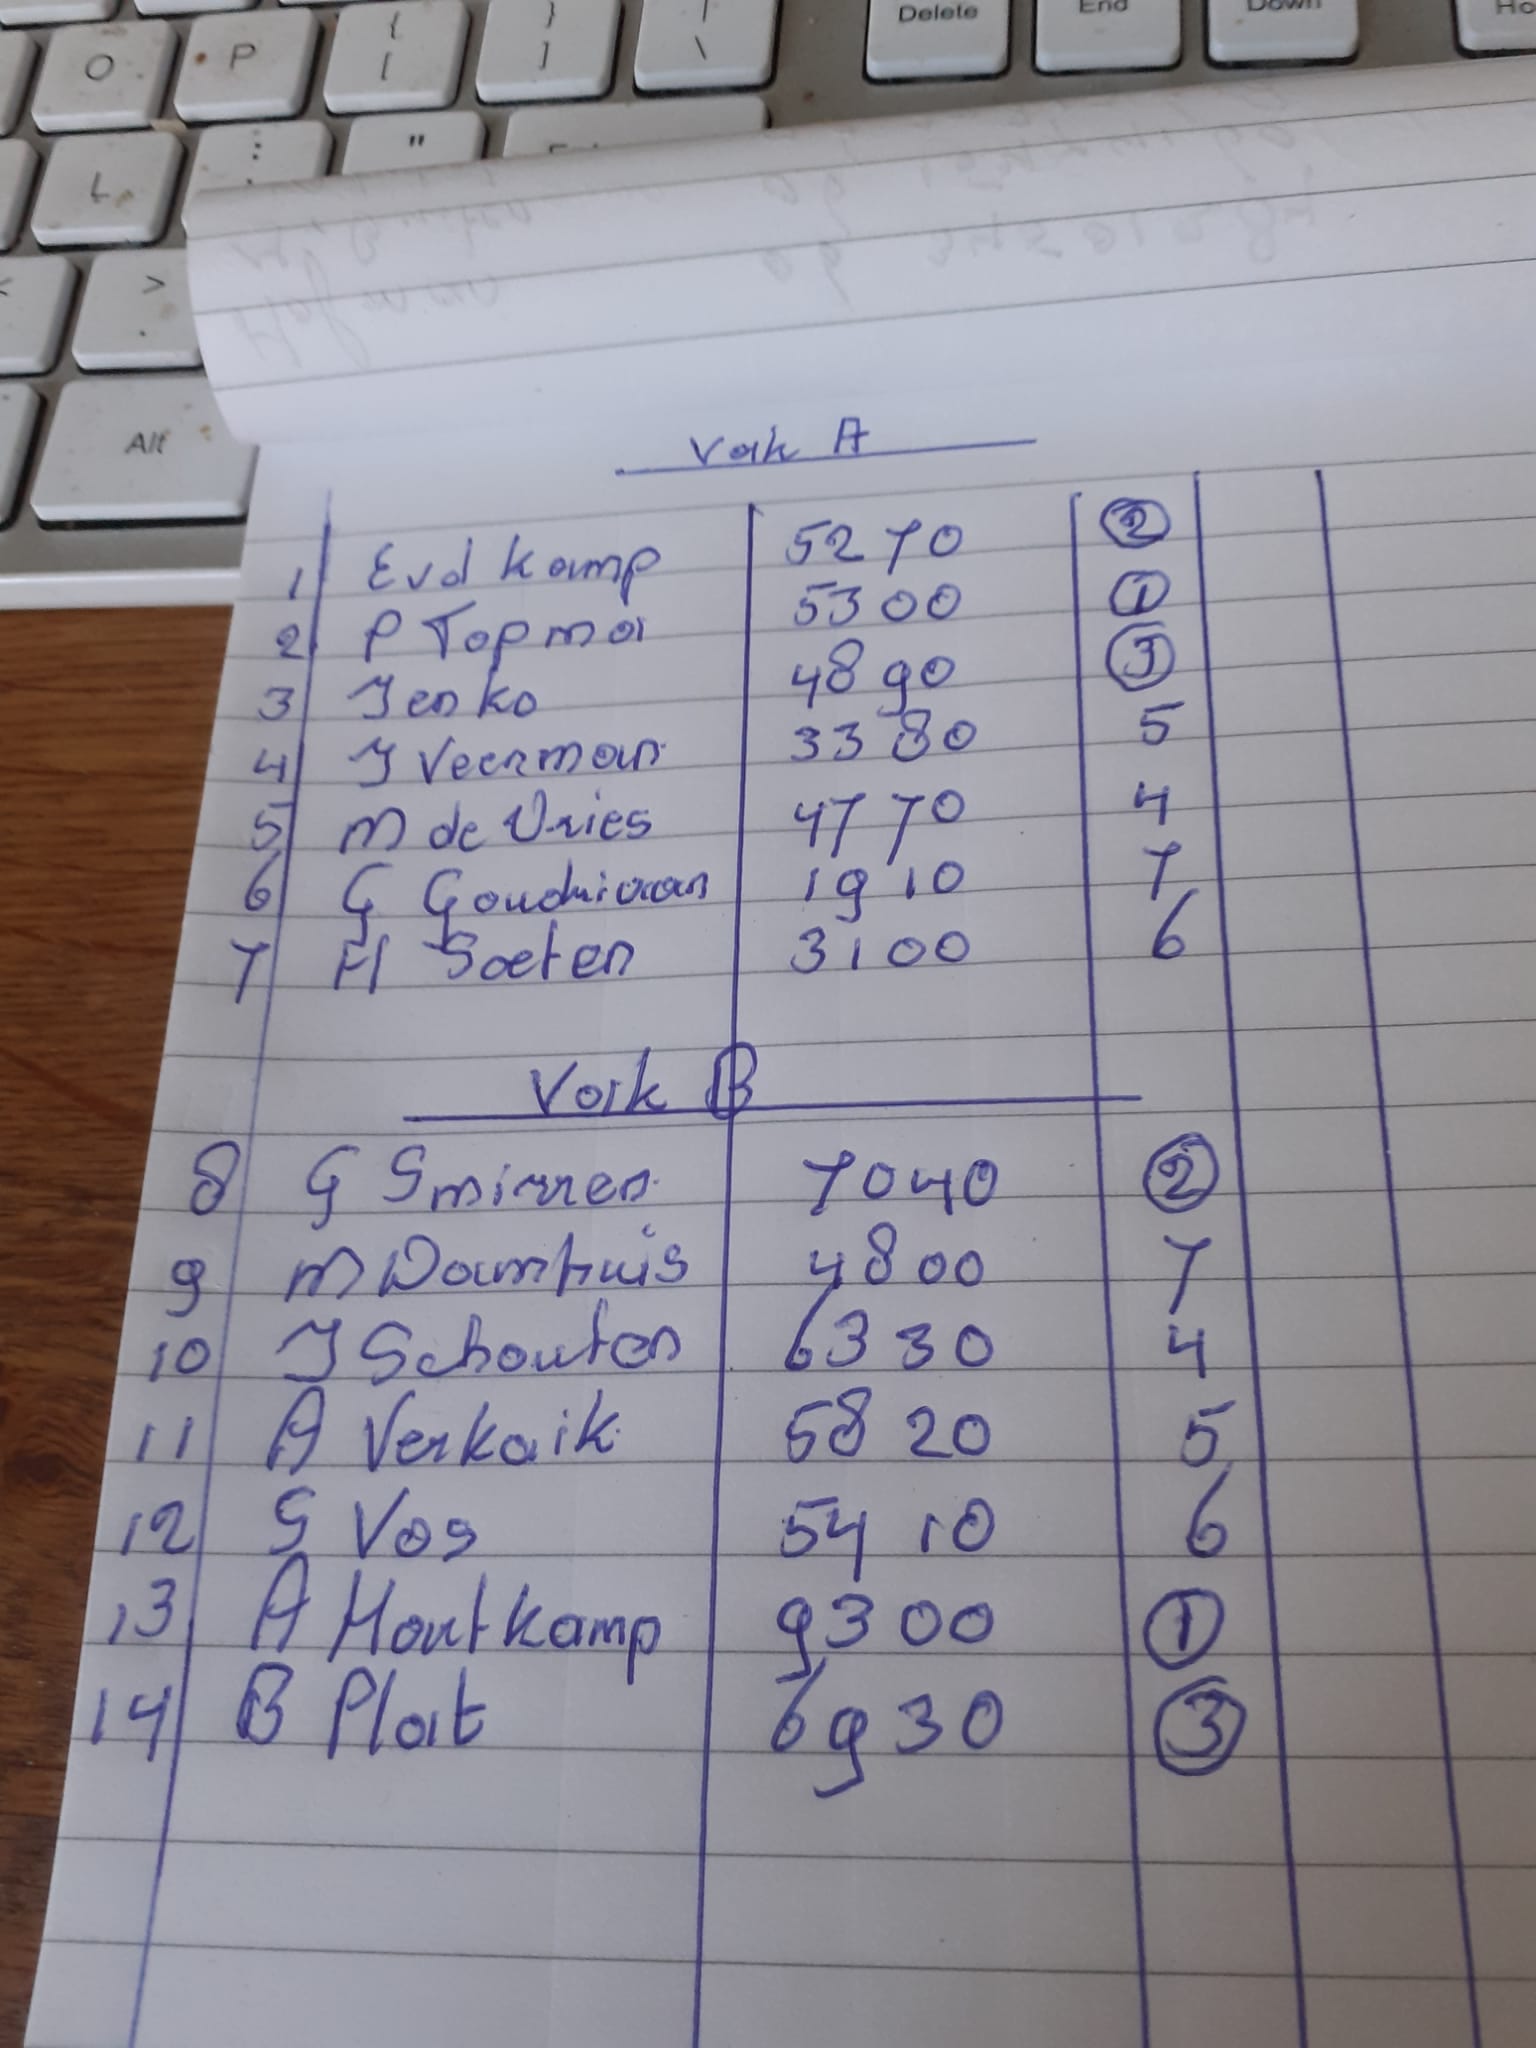 O P { [ } ] | \ Delete End Down Ho
L : "
< >
Alt
Vak A
1 Evd Kamp 5270 2
2 P Topma 5300 1
3 Jenko 4890 3
4 J Veerman 3380 5
5 M de Vries 4770 4
6 G Goudriaan 1910 7
7 H Soeten 3100 6
Vak B
8 G Smirren 7040 2
9 M Damhuis 4800 7
10 J Schouten 6330 4
11 A Verkaik 5820 5
12 S Vos 5410 6
13 A Houtkamp 9300 1
14 B Plat 6930 3